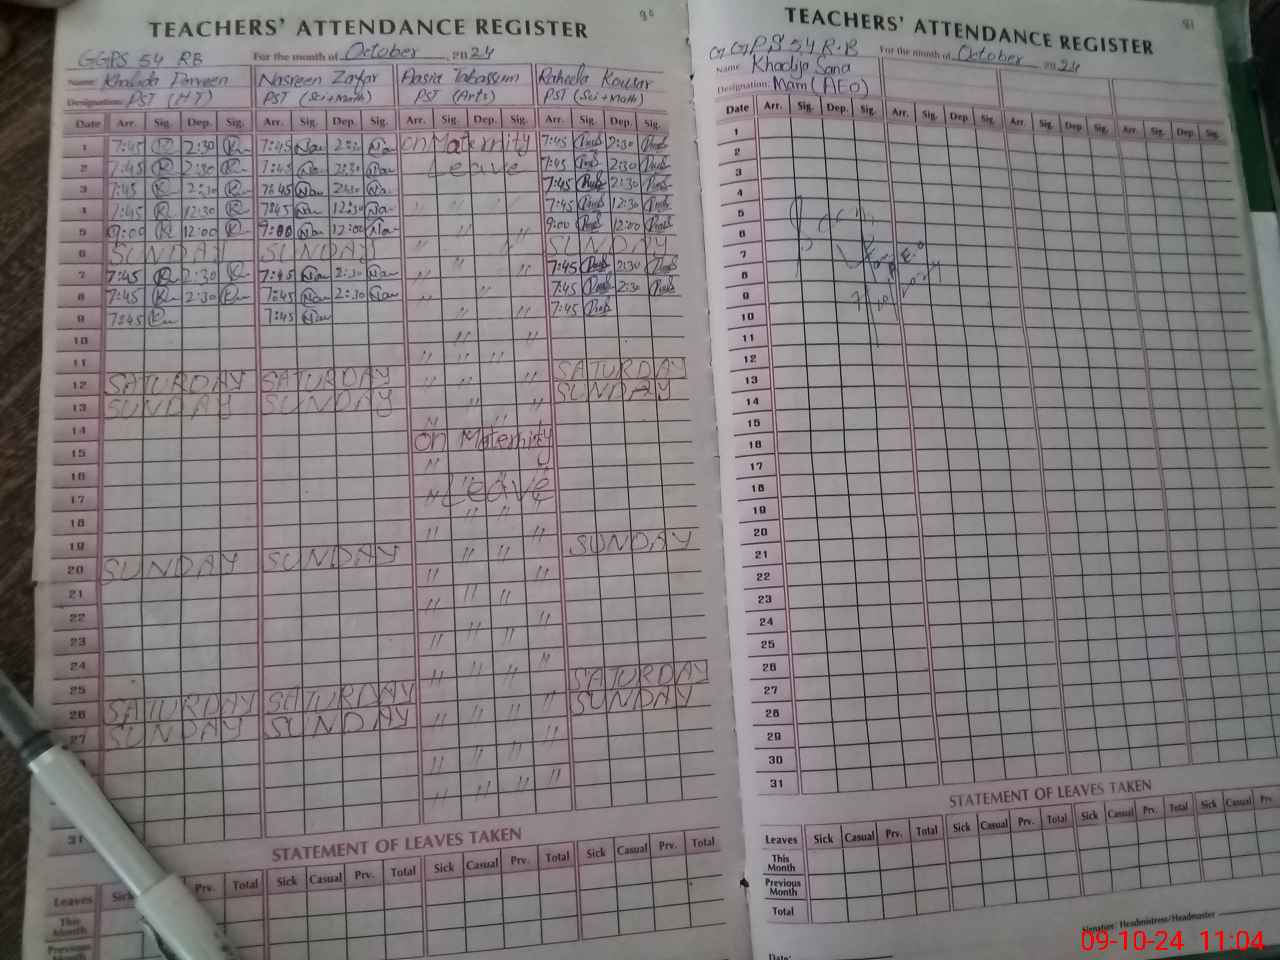 90
TEACHERS' ATTENDANCE REGISTER
GGPS 54 RB For the month of October, 2024
Name: Khalida Perveen Nasreen Zafar Aasia Tabassum Raheela Kousar
Designation: PST (H.T) PST (Sci+Math) PST (Arts) PST (Sci+Math)
Date Arr. Sig. Dep. Sig. Arr. Sig. Dep. Sig. Arr. Sig. Dep. Sig. Arr. Sig. Dep. Sig.
1 7:45 2:30 7:45 2:30 On Maternity 7:45 2:30
2 7:45 2:30 7:45 2:30 Leave 7:45 2:30
3 7:45 2:30 7:45 2:30 7:45 2:30
4 7:45 12:30 7:45 12:30 " " " 7:45 12:30
5 9:00 12:00 9:00 12:00 " " " 9:00 12:00
6 SUNDAY SUNDAY SUNDAY
7 7:45 2:30 7:45 2:30 " " " 7:45 2:30
8 7:45 2:30 7:45 2:30 " " 7:45 2:30
9 7:45 7:45 7:45
10
11
12 SATURDAY SATURDAY SATURDAY
13 SUNDAY SUNDAY SUNDAY
14
15 On Maternity
16
17 Leave
18
19
20 SUNDAY SUNDAY SUNDAY
21
22
23
24
25
26 SATURDAY SATURDAY SATURDAY
27 SUNDAY SUNDAY SUNDAY
31
STATEMENT OF LEAVES TAKEN
Leaves Sick Prv. Total Sick Casual Prv. Total Sick Casual Prv. Total Sick Casual Prv. Total
This Month
Previous Month
91
TEACHERS' ATTENDANCE REGISTER
G.G.P.S 54 R.B For the month of October 2024
Name: Khadija Sana
Designation: Mam (AEO)
Date Arr. Sig. Dep. Sig. Arr. Sig. Dep. Sig. Arr. Sig. Dep. Sig. Arr. Sig. Dep. Sig.
1
2
3
4
5
6
7
8
9
10
11
12
13
14
15
16
17
18
19
20
21
22
23
24
25
26
27
28
29
30
31
STATEMENT OF LEAVES TAKEN
Leaves Sick Casual Prv. Total Sick Casual Prv. Total Sick Casual Prv. Total Sick Casual Prv.
This Month
Previous Month
Total
Signature: Headmistress/Headmaster
Date:
09-10-24 11:04